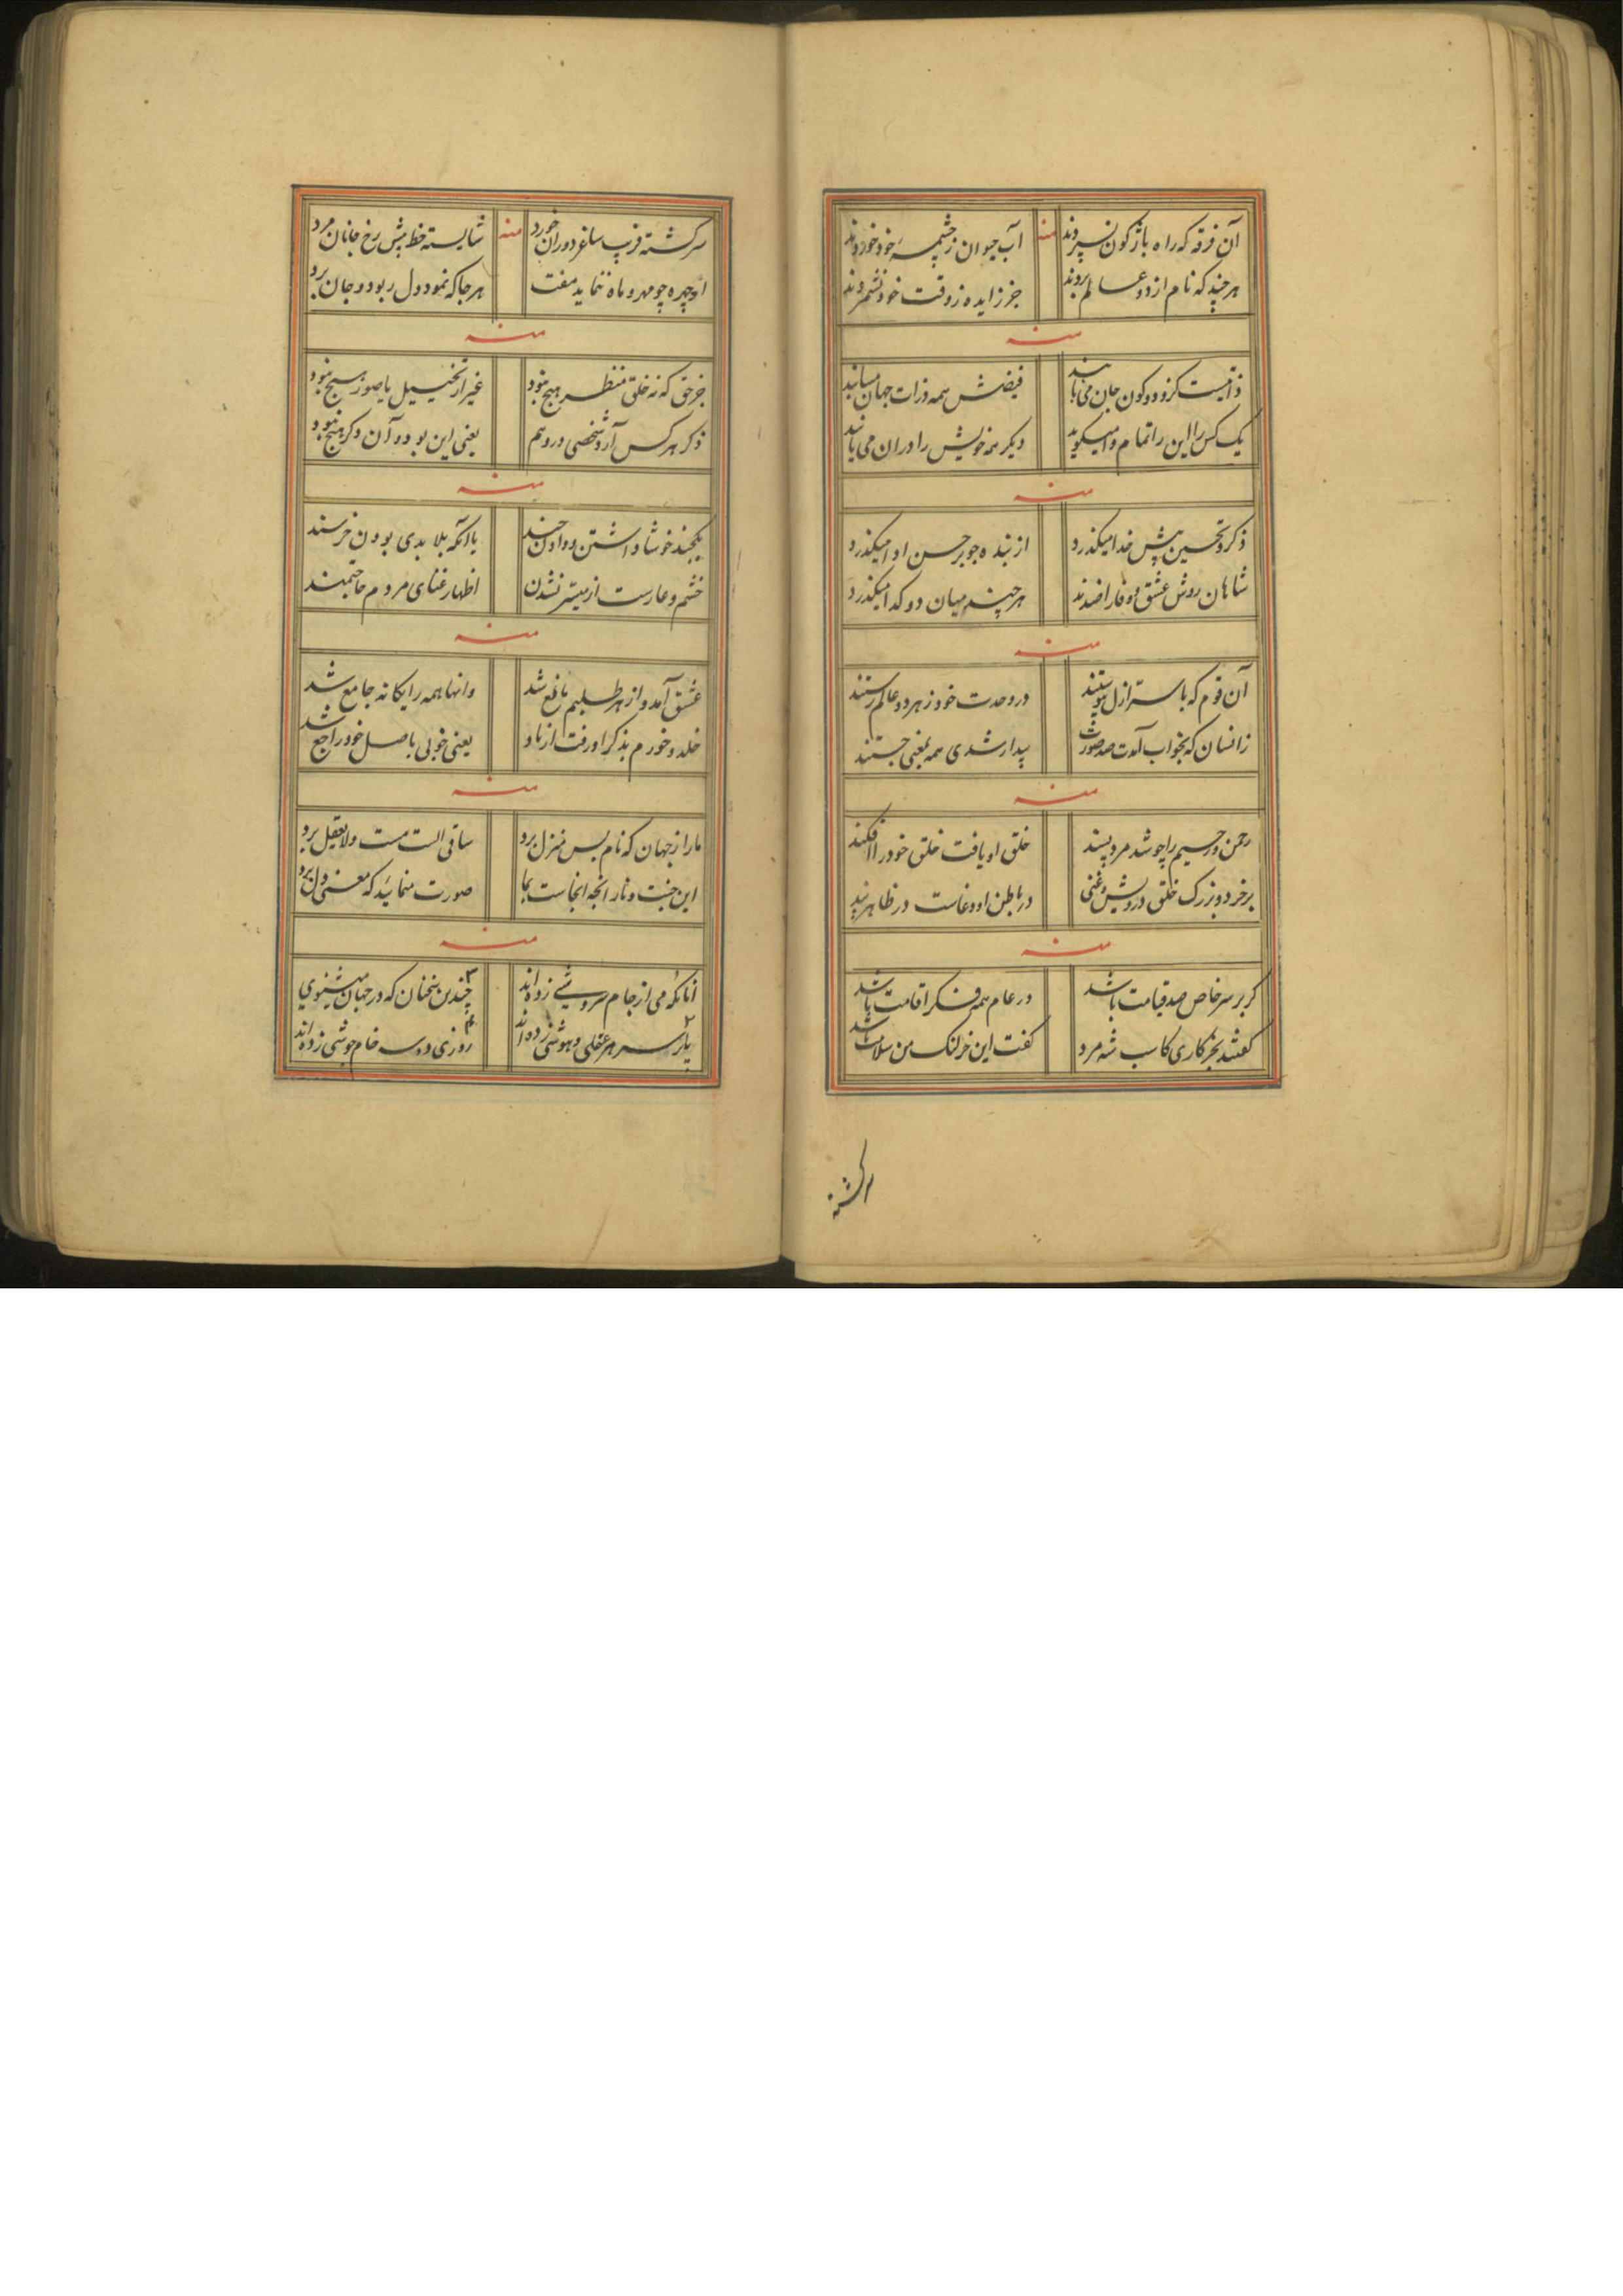 آن فرقه که راه باژگون نسپردند منه آب حیوان ز چشمهٔ خود خوردند
هر چند که نام از دو عالم بردند جز زایده ز وقت خود نشمردند
منه
ذاتیست کزو دو کون جان می‌یابند فیضش همه ذرات جهان میابند
یک کس را این را تمام وا میگوید دیگر همه خویش را در آن می‌یابند
منه
ذکر و تحسین پیش خدا میگذرد از بنده چو بر حسن ادا میگذرد
شاهان روش عشق و وفا هر چند میان دو گدا میگذرد
منه
آن قوم که با سر ازل پیوستند در وحدت خود ز هر دو عالم رستند
زانسان که بخواب آمدت صد صورت بیدار شدی همه بمعنی جستند
منه
رحمن و رحیم را چو شد مرد پسند خلق او یافت خلق خود را افکند
بر خرد و بزرگ خلق درویش و غنی در باطن او دعاست در ظاهر پند
منه
گر بر سر خاص صد قیامت باشد در عام همه فکر اقامت باشد
گفتند بخر کاری کاسب شه مرد گفت این خر لنگ من سلامت باشد
سرگشته
سرگشته فریب ساغر دوران خورد منه شایسته خط پیش رخ جانان مرد
او چهره چو مهر و ماه ننماید مفت هر جا که نمود دل ربود و جان برد
منه
جز حق که نه خلق منتظر هیچ نبود غیر از تخییل یا صور هیچ نبود
ذکر هر کس آرد شخصی در وهم یعنی این بود و آن دگر هیچ نبود
منه
یکچند خوشا داشتن و دادن چند با آنکه بلا بدی بودن خرسند
خشم و عارست از میسر نشدن اظهار غنای مردم حاجتمند
منه
عشق آمد و از هر طلبیم مانع شد وانها همه رایگانه جامع شد
خلد و خورم بذکر او رفت از یاد یعنی خوبی باصل خود راجع شد
منه
ما را ز جهان که نام بس منزل برد ساقی الست مست و لایعقل برد
این جنت و نار انجه انجاست بما صورت منمائید که معنی دل برد
منه
آنانکه می از جام سروشی زده‌اند چندین سخنان که در جهان میشنوی
بر سر هر عقلی و هوشی زده‌اند روزی دو سه خام جوشی زده‌اند